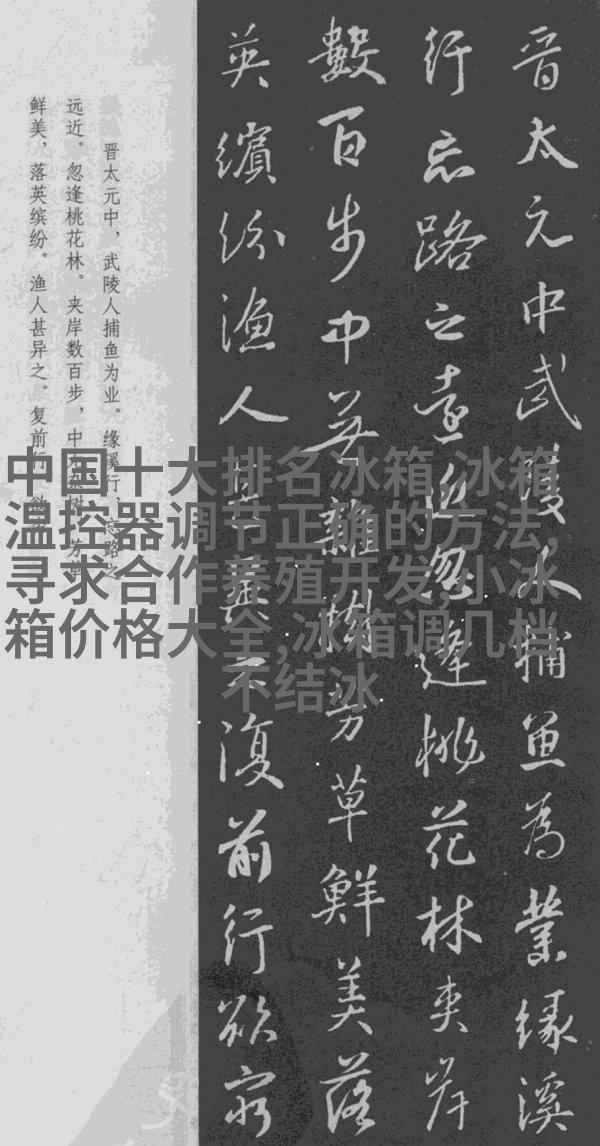 晋太元中武陵人捕魚為業緣溪
行忘路之遠近忽逢桃花林夾岸
數百步中無雜樹芳草鮮美落
英繽紛漁人甚異之復前行欲窮
晋太元中，武陵人捕鱼为业。缘溪行，忘路之
远近。忽逢桃花林。夹岸数百步，中无杂树，芳草
鲜美，落英缤纷。渔人甚异之。复前行，欲
中国十大排名冰箱,冰箱
温控器调节正确的方法,
寻求合作养殖开发,小冰
箱价格大全,冰箱调几档
不结冰